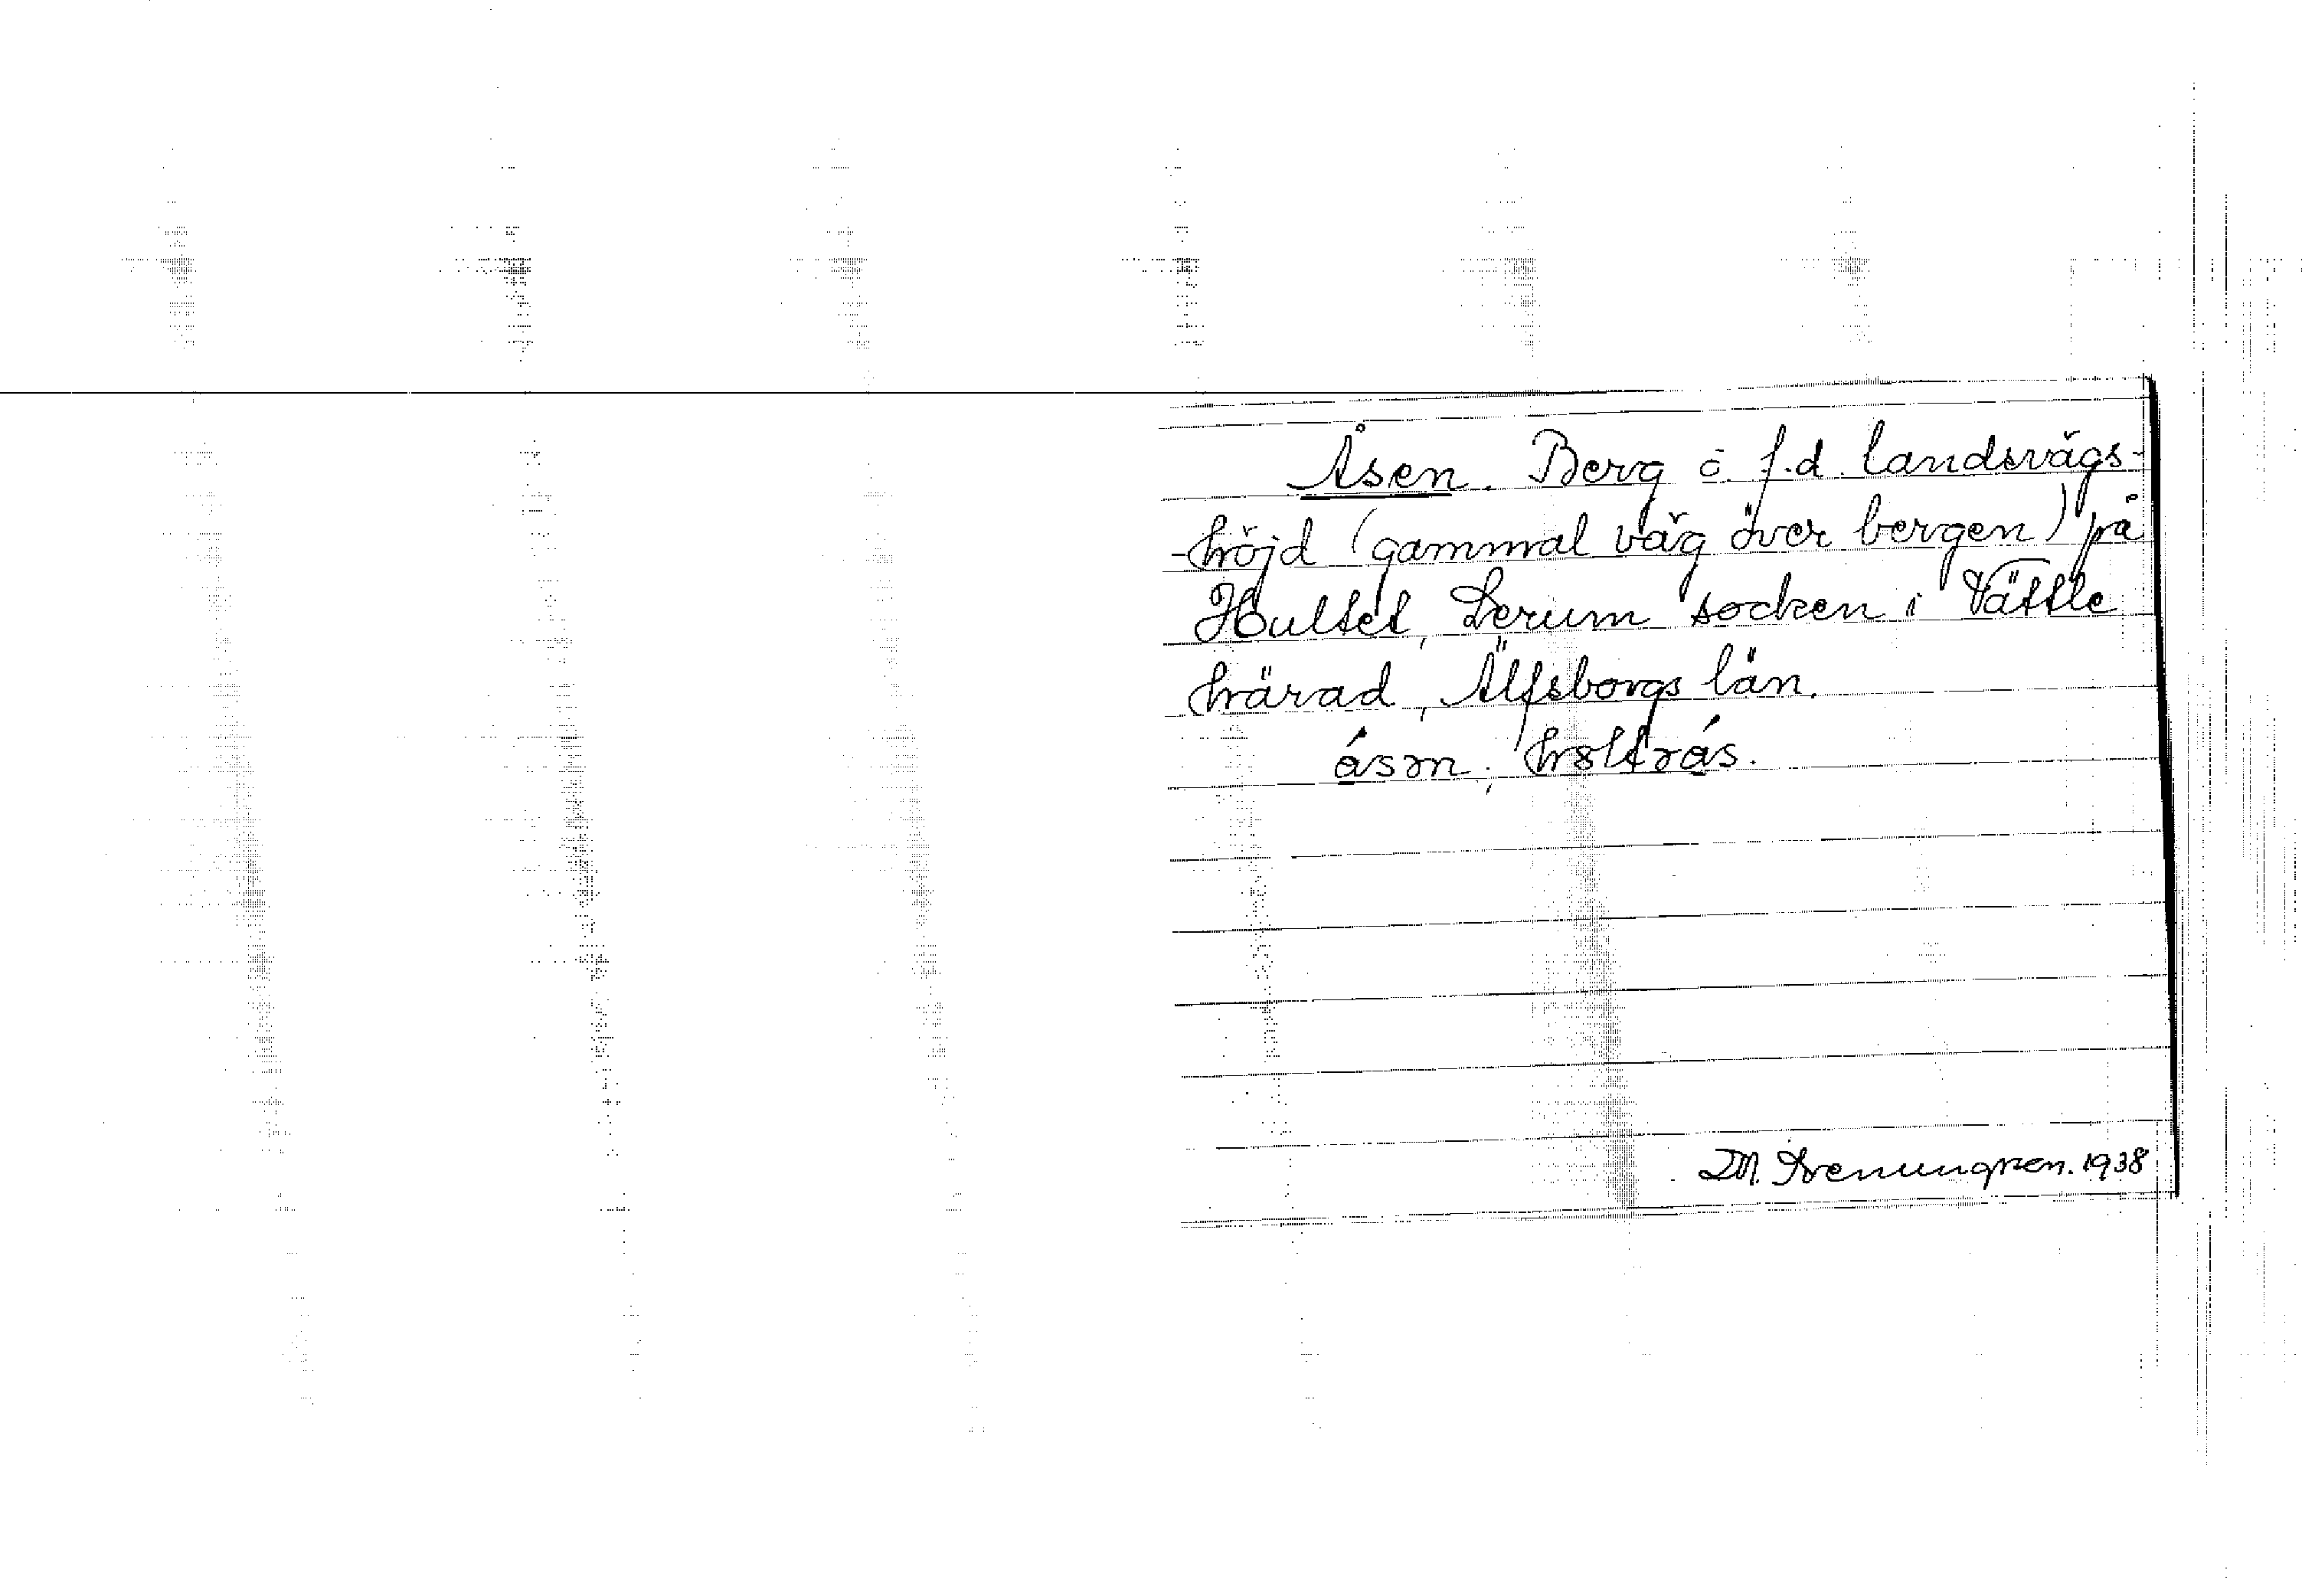 Åsen. Berg o. f.d. landsvägs-
-höjd (gammal väg över bergen) på
Hultet, Lerum socken i Vättle
härad, Älfsborgs län.
åsən; həltrås.
D.M. Stenungren. 1938